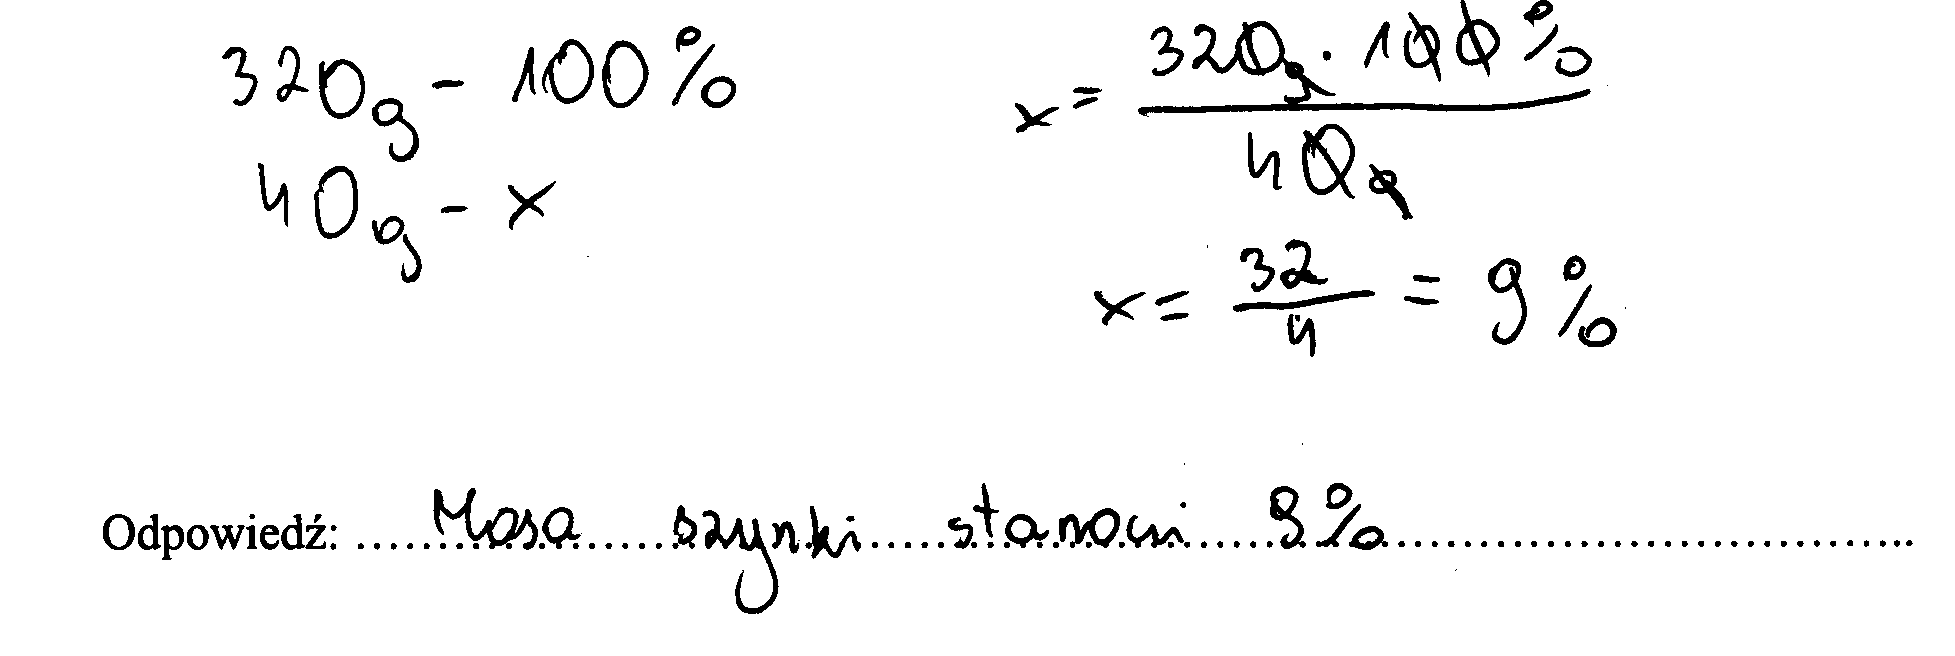 320g - 100%
40g - x
x = \frac{320g · 100%}{40g}
x = \frac{32}{4} = 9%
Odpowiedź: Masa szynki stanowi 9%